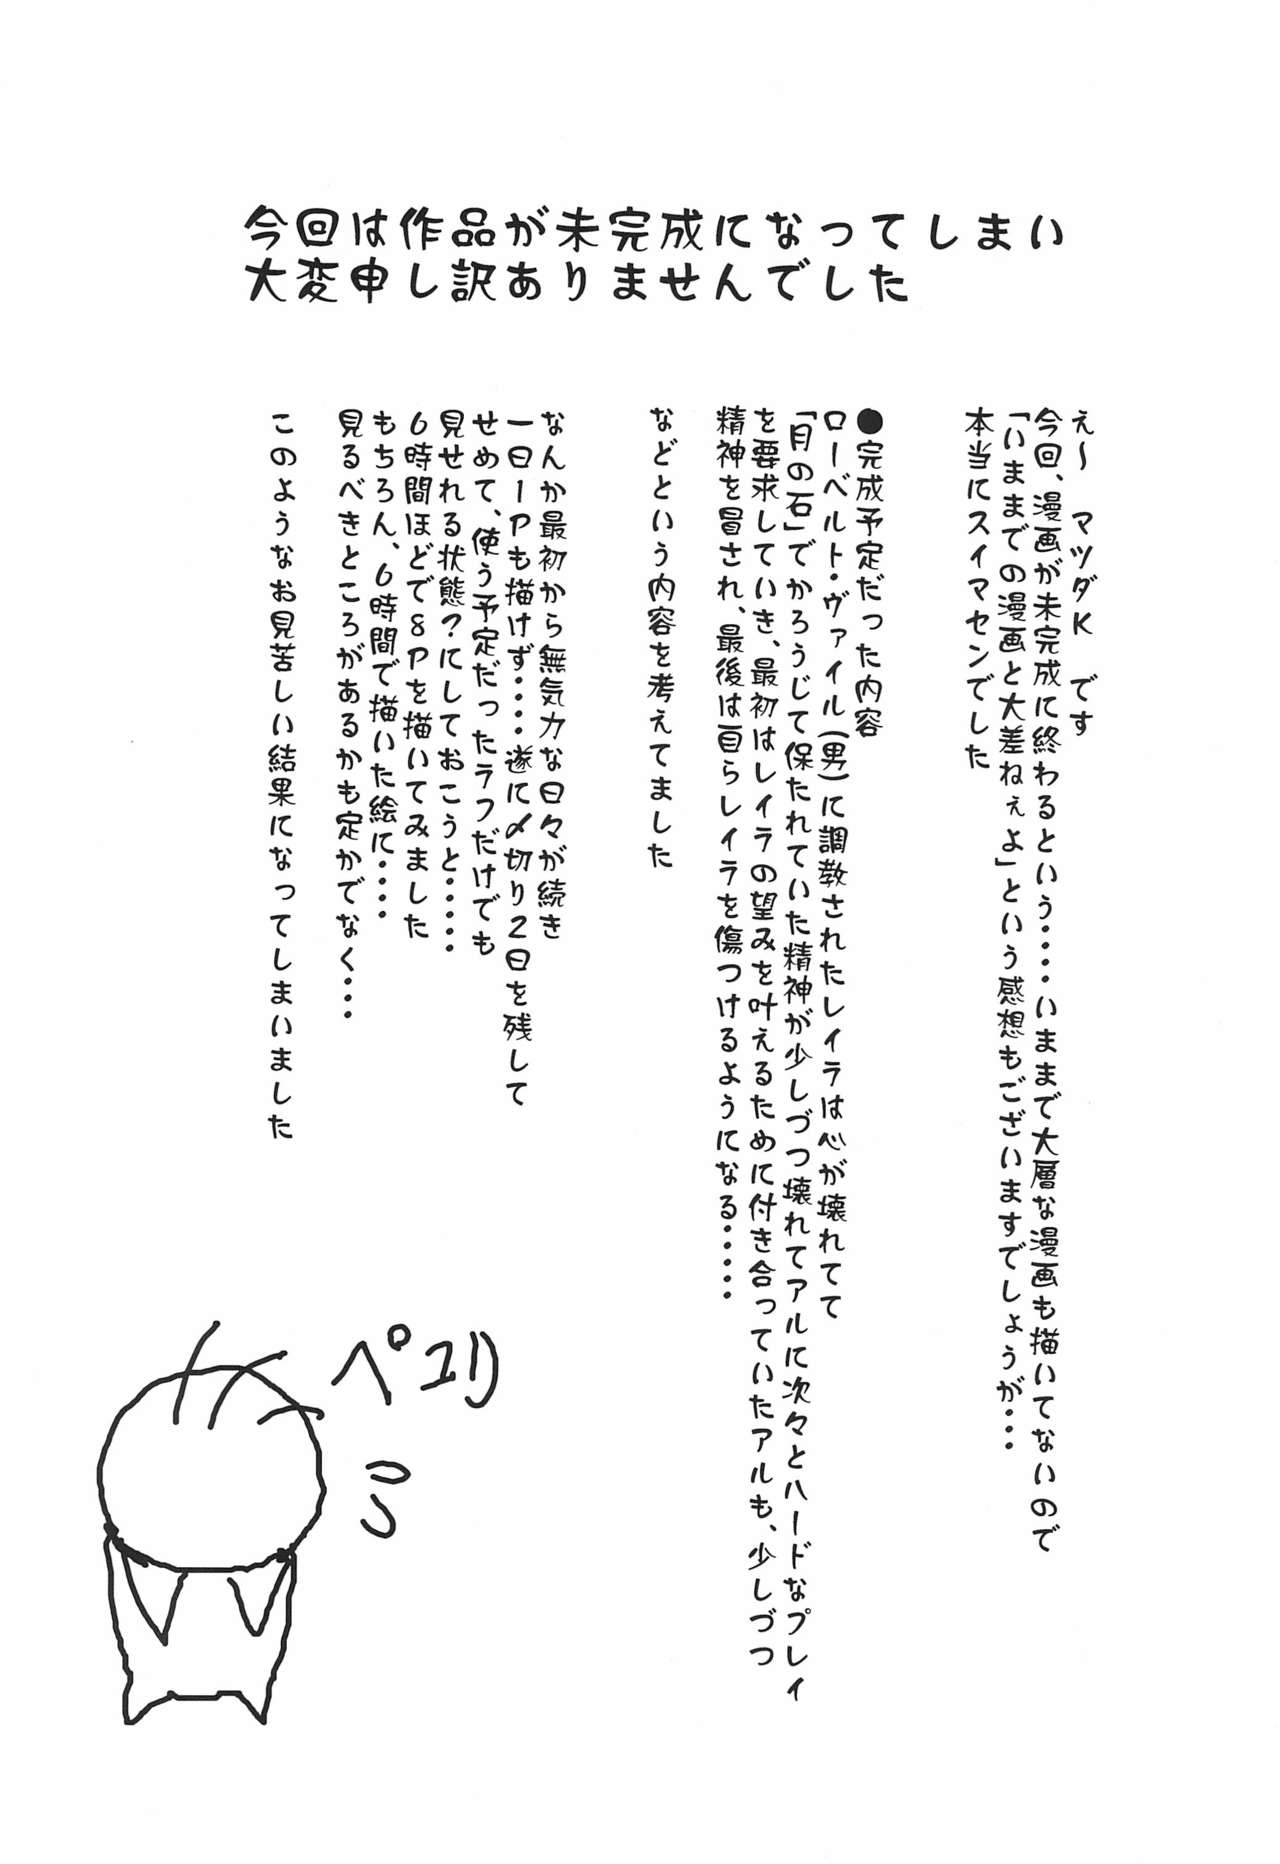 今回は作品が未完成になってしまい
大変申し訳ありませんでした
え～　マツダK　です
今回、漫画が未完成に終わるという・・・・いままで大層な漫画も描いてないので
「いままでの漫画と大差ねぇよ」という感想もございますでしょうが・・・
本当にスイマセンでした
●完成予定だった内容
ローベルト・ヴァイル(男)に調教されたレイラは心が壊れてて
「月の石」でかろうじて保たれていた精神が少しづつ壊れてアルに次々とハードなプレイ
を要求していき、最初はレイラの望みを叶えるために付き合っていたアルも、少しづつ
精神を冒され、最後は自らレイラを傷つけるようになる・・・・・
などという内容を考えてました
なんか最初から無気力な日々が続き
一日1Pも描けず・・・・遂に〆切り2日を残して
せめて、使う予定だったラフだけでも
見せれる状態?にしておこうと・・・・・
6時間ほどで8Pを描いてみました
もちろん、6時間で描いた絵に・・・・
見るべきところがあるかも定かでなく・・・
このようなお見苦しい結果になってしまいました
ペコリ